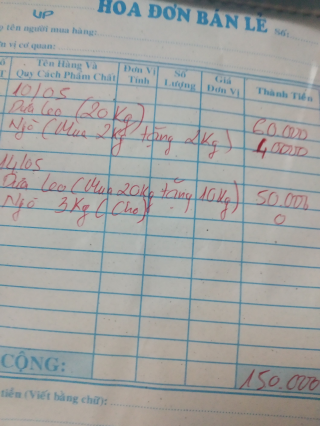 HÓA ĐƠN BÁN LẺ Số:
UP
tên người mua hàng:
vị cơ quan:
Tên Hàng Và Quy Cách Phẩm Chất Đơn Vị Tính Số Lượng Giá Đơn Vị Thành Tiền
10/05
Dưa leo (20 Kg) 60.000
Ngò (Mua 2Kg tặng 1Kg) 40000
11/05
Dưa leo (Mua 20Kg tặng 10Kg) 50.000
Ngò 3Kg (Cho) 0
CỘNG: 150.000
tiền (Viết bằng chữ):